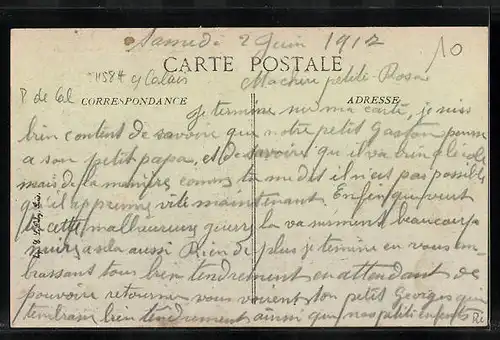 Samedi 2 Juin 1917
10
CARTE POSTALE
4584 cf Calais
Ma chere petite Rosa
P de Cal
CORRESPONDANCE
ADRESSE
Je termine sur ma carte, je suis
bien content de savoire que notre petit Gaston pense
a son petit papa, et de savoire qu'il va bien a l'ecole
mais de la manière comme tu me dit il n'es pas possible
qu'il apprenne vite maintenant. Enfin que veut
tu cette malheureuse guerre la va vraiment beaucoup
nuire a sela aussi Rien de plus je termine en vous em-
brassant tous bien tendrement en attendant de
pouvoire retourner vous voir ton petit Georges qui
t'embrasse bien tendrement ainsi que nos petits enfants